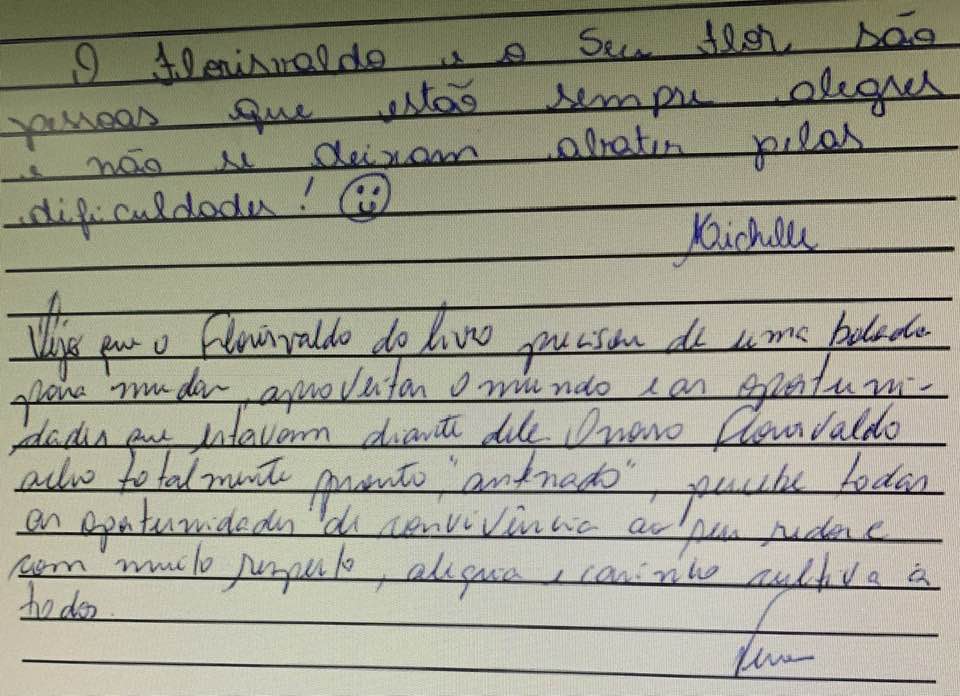 O Florisvaldo e o Seu Flor são
pessoas que estão sempre alegres
e não se deixam abater pelas
dificuldades!
Michelle
Vejo que o Florisvaldo do livro precisou de uma bolada
para mudar, aproveitar o mundo e as oportuni-
dades que estavam diante dele. O nosso Florisvaldo
acho totalmente pronto, "antenado", percebe todas
as oportunidades de convivência ao seu redor e
com muito respeito, alegria e carinho cultiva a
todos.